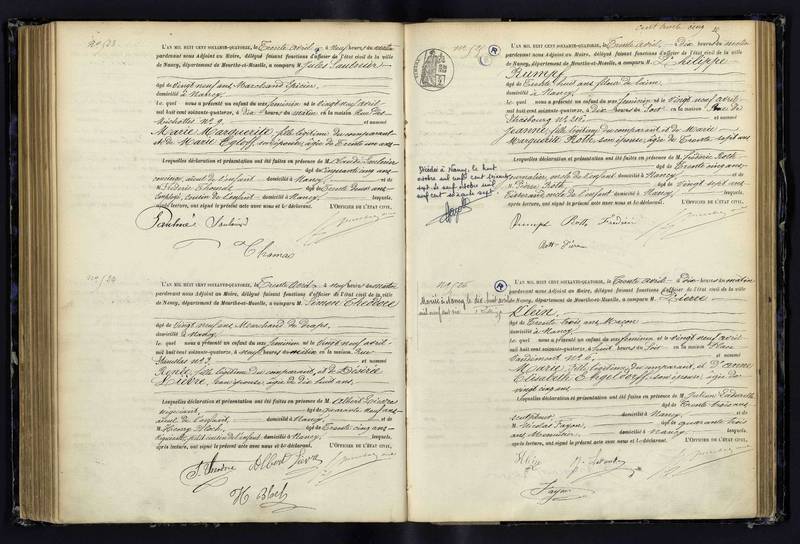 N° 523
L'AN MIL HUIT CENT SOIXANTE-QUATORZE, le Trente avril, à Neuf heures du matin
pardevant nous Adjoint au Maire, délégué faisant fonctions d'officier de l'état civil de la ville
de Nancy, département de Meurthe-et-Moselle, a comparu M. Jules
âgé de Vingt neuf ans Marchand Epicier
domicilié à Nancy
lequel nous a présenté un enfant du sexe féminin né le Vingt neuf avril
mil huit cent soixante-quatorze, à dix heures du matin en la maison Rue des
Michottes N° 9, et nommé
Marie Marguerite, fille légitime du comparant
et de Marie Egloff son épouse, âgée de Trente un ans
Lesquelles déclaration et présentation ont été faites en présence de M.
âgé de Cinquante cinq ans
concierge, aïeul de l'enfant domicilié à Nancy et de
M. Frédéric Thomas âgé de Trente
Employé, cousin de l'enfant domicilié à Nancy lesquels,
après lecture, ont signé le présent acte avec nous et le déclarant. L'OFFICIER DE L'ÉTAT CIVIL,
Thomas
N° 524
L'AN MIL HUIT CENT SOIXANTE-QUATORZE, le Trente avril à neuf heures du matin
pardevant nous Adjoint au Maire, délégué faisant fonctions d'officier de l'état civil de la ville
de Nancy, département de Meurthe-et-Moselle, a comparu M. Simon
âgé de Vingt neuf ans Marchand de draps,
domicilié à Nancy
lequel nous a présenté un enfant du sexe féminin né le vingt neuf avril
mil huit cent soixante-quatorze, à neuf heures du matin en la maison Rue
N° 2, et nommé
Renée, fille légitime du comparant, et de Désirée
Lièvre, son épouse, âgée de dix huit ans,
Lesquelles déclaration et présentation ont été faites en présence de M. Albert
négociant, âgé de quarante neuf ans
aïeul de l'enfant, domicilié à Nancy et de
M. Henry Bloch, âgé de Trente cinq ans
Négociant, cousin de l'enfant domicilié à Nancy, lesquels,
après lecture, ont signé le présent acte avec nous et le déclarant. L'OFFICIER DE L'ÉTAT CIVIL,
Albert
H Bloch
Cent trente cinq
L'AN MIL HUIT CENT SOIXANTE-QUATORZE, le Trente avril à Dix heures du matin
pardevant nous Adjoint au Maire, délégué faisant fonctions d'officier de l'état civil de la ville
de Nancy, département de Meurthe-et-Moselle, a comparu M. Philippe
Rumpf
âgé de Trente huit ans fileur de laine,
domicilié à Nancy
lequel nous a présenté un enfant du sexe féminin né le Vingt neuf avril
mil huit cent soixante-quatorze, à dix heures du soir en la maison Rue de
Strasbourg N° 216, et nommé
Jeanne, fille légitime du comparant et de Marie
Marguerite Roth, son épouse, âgée de Trente sept ans
Lesquelles déclaration et présentation ont été faites en présence de M. Frédéric Roth
âgé de Trente cinq ans
Journalier, oncle de l'enfant domicilié à Nancy et de
M. Pierre Roth âgé de Vingt sept ans
Tisserand, oncle de l'enfant domicilié à Nancy lesquels,
après lecture, ont signé le présent acte avec nous et le déclarant. L'OFFICIER DE L'ÉTAT CIVIL,
Décédée à Nancy, le huit
octobre mil neuf cent
Rumpf
N° 526
L'AN MIL HUIT CENT SOIXANTE-QUATORZE, le Trente avril à dix heures du matin
pardevant nous Adjoint au Maire, délégué faisant fonctions d'officier de l'état civil de la ville
Mariée à Nancy le dix huit
de Nancy, département de Meurthe-et-Moselle, a comparu M. Pierre
Klein
âgé de Trente trois ans Maçon
domicilié à Nancy
lequel nous a présenté un enfant du sexe féminin né le vingt neuf avril
mil huit cent soixante-quatorze, à huit heures du soir en la maison Place
Vaudémont N° 6, et nommé
Marie, fille légitime du comparant, et d'Anne
Elisabeth son épouse, âgée de
vingt cinq ans
Lesquelles déclaration et présentation ont été faites en présence de M. Julien
âgé de Trente trois ans
sculpteur, domicilié à Nancy, et de
M. Nicolas Fayon, âgé de quarante trois
ans Menuisier, domicilié à Nancy lesquels,
après lecture, ont signé le présent acte avec nous et le déclarant. L'OFFICIER DE L'ÉTAT CIVIL,
Fayon